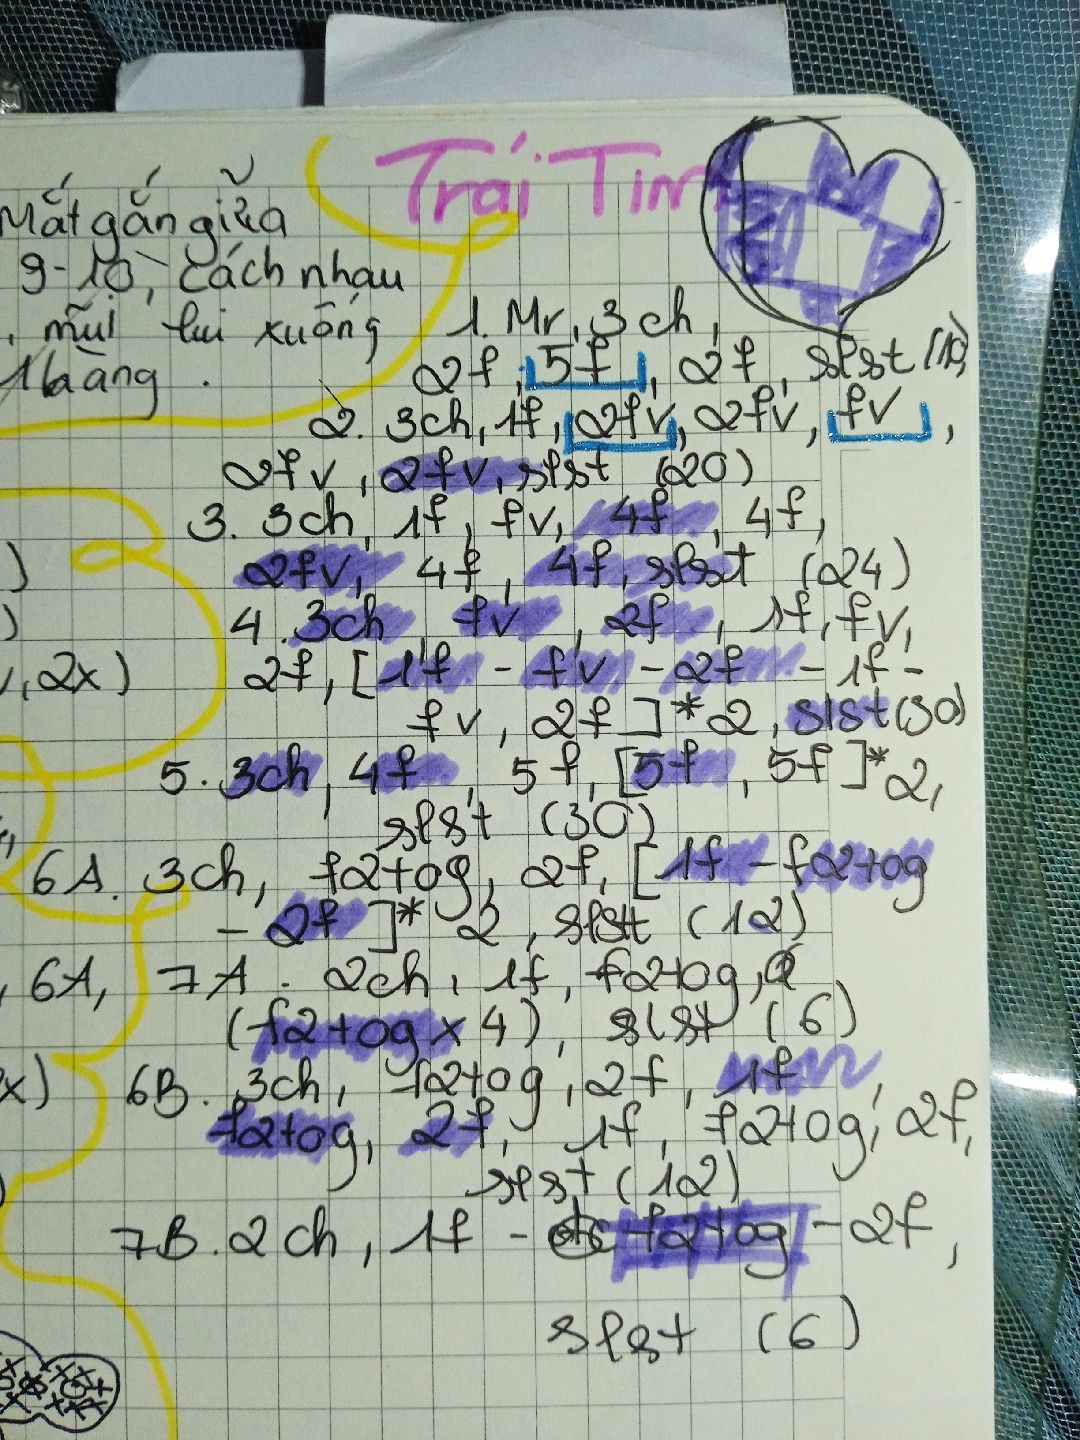 Trái Tim
Mắt gắn giữa
9-10, cách nhau
, mũi lui xuống
1 hàng.
1. Mr, 3ch,
2f, 5f, 2f, slst (10)
2. 3ch, 1f, 2fv, 2fv, fv,
2fv, 2fv, slst (20)
3. 3ch, 1f, fv, 4f, 4f,
2fv, 4f, 4f, slst (24)
4. 3ch, fv, 2f, 1f, fv,
, 2x)
2f, [1f - fv - 2f - 1f -
fv, 2f]*2, slst (30)
5. 3ch, 4f, 5f, [5f, 5f]*2,
slst (30)
6A. 3ch, f2tog, 2f, [1f - f2tog
- 2f]*2, slst (12)
, 6A, 7A. 2ch, 1f, f2tog,
(f2tog x 4), slst (6)
x) 6B. 3ch, f2tog, 2f, 1f,
f2tog, 2f, 1f, f2tog, 2f,
slst (12)
7B. 2ch, 1f - f2tog - 2f,
slst (6)